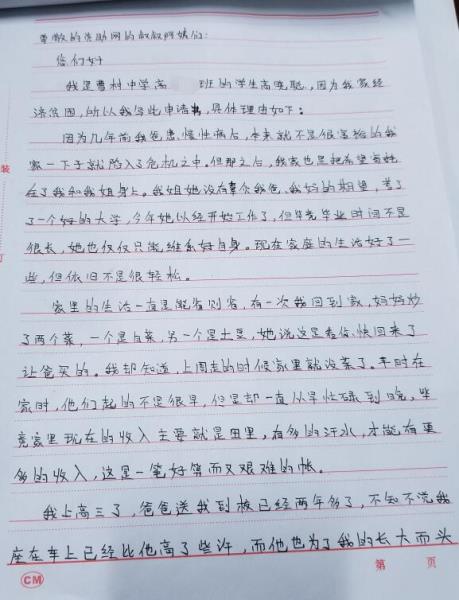 尊敬的资助网的叔叔阿姨们:
您们好
我是曹村中学高 班的学生高晓聪,因为我家经
济贫困,所以我写此申请书,具体理由如下:
因为几年前我爸患慢性病后,本来就不是很富裕的我
家一下子就陷入了危机之中。但那之后,我家也是把希望寄托
在了我和我姐身上。我姐她没有辜负我爸、我妈的期望,考了
了一个好的大学,今年她以经开始工作了,但毕竟毕业时间不是
很长,她也仅仅只能维系好自身。现在家庭的生活好了一
些,但依旧不是很轻松。
家里的生活一直是能省则省,有一次我回到家,妈妈炒
了两个菜,一个是白菜,另一个是土豆,她说这是看你快回来了
让爸买的。我却知道,上周走的时候家里就没菜了。平时在
家时,他们起的不是很早,但是却一直从早忙碌到晚,毕
竟家里现在的收入主要就是田里,有多的汗水,才能有更
多的收入,这是一笔好算而又艰难的帐。
我上高三了,爸爸送我到校已经两年多了,不知不觉我
座在车上已经比他高了些许,而他也为了我的长大而头
装
订
CM
第 页